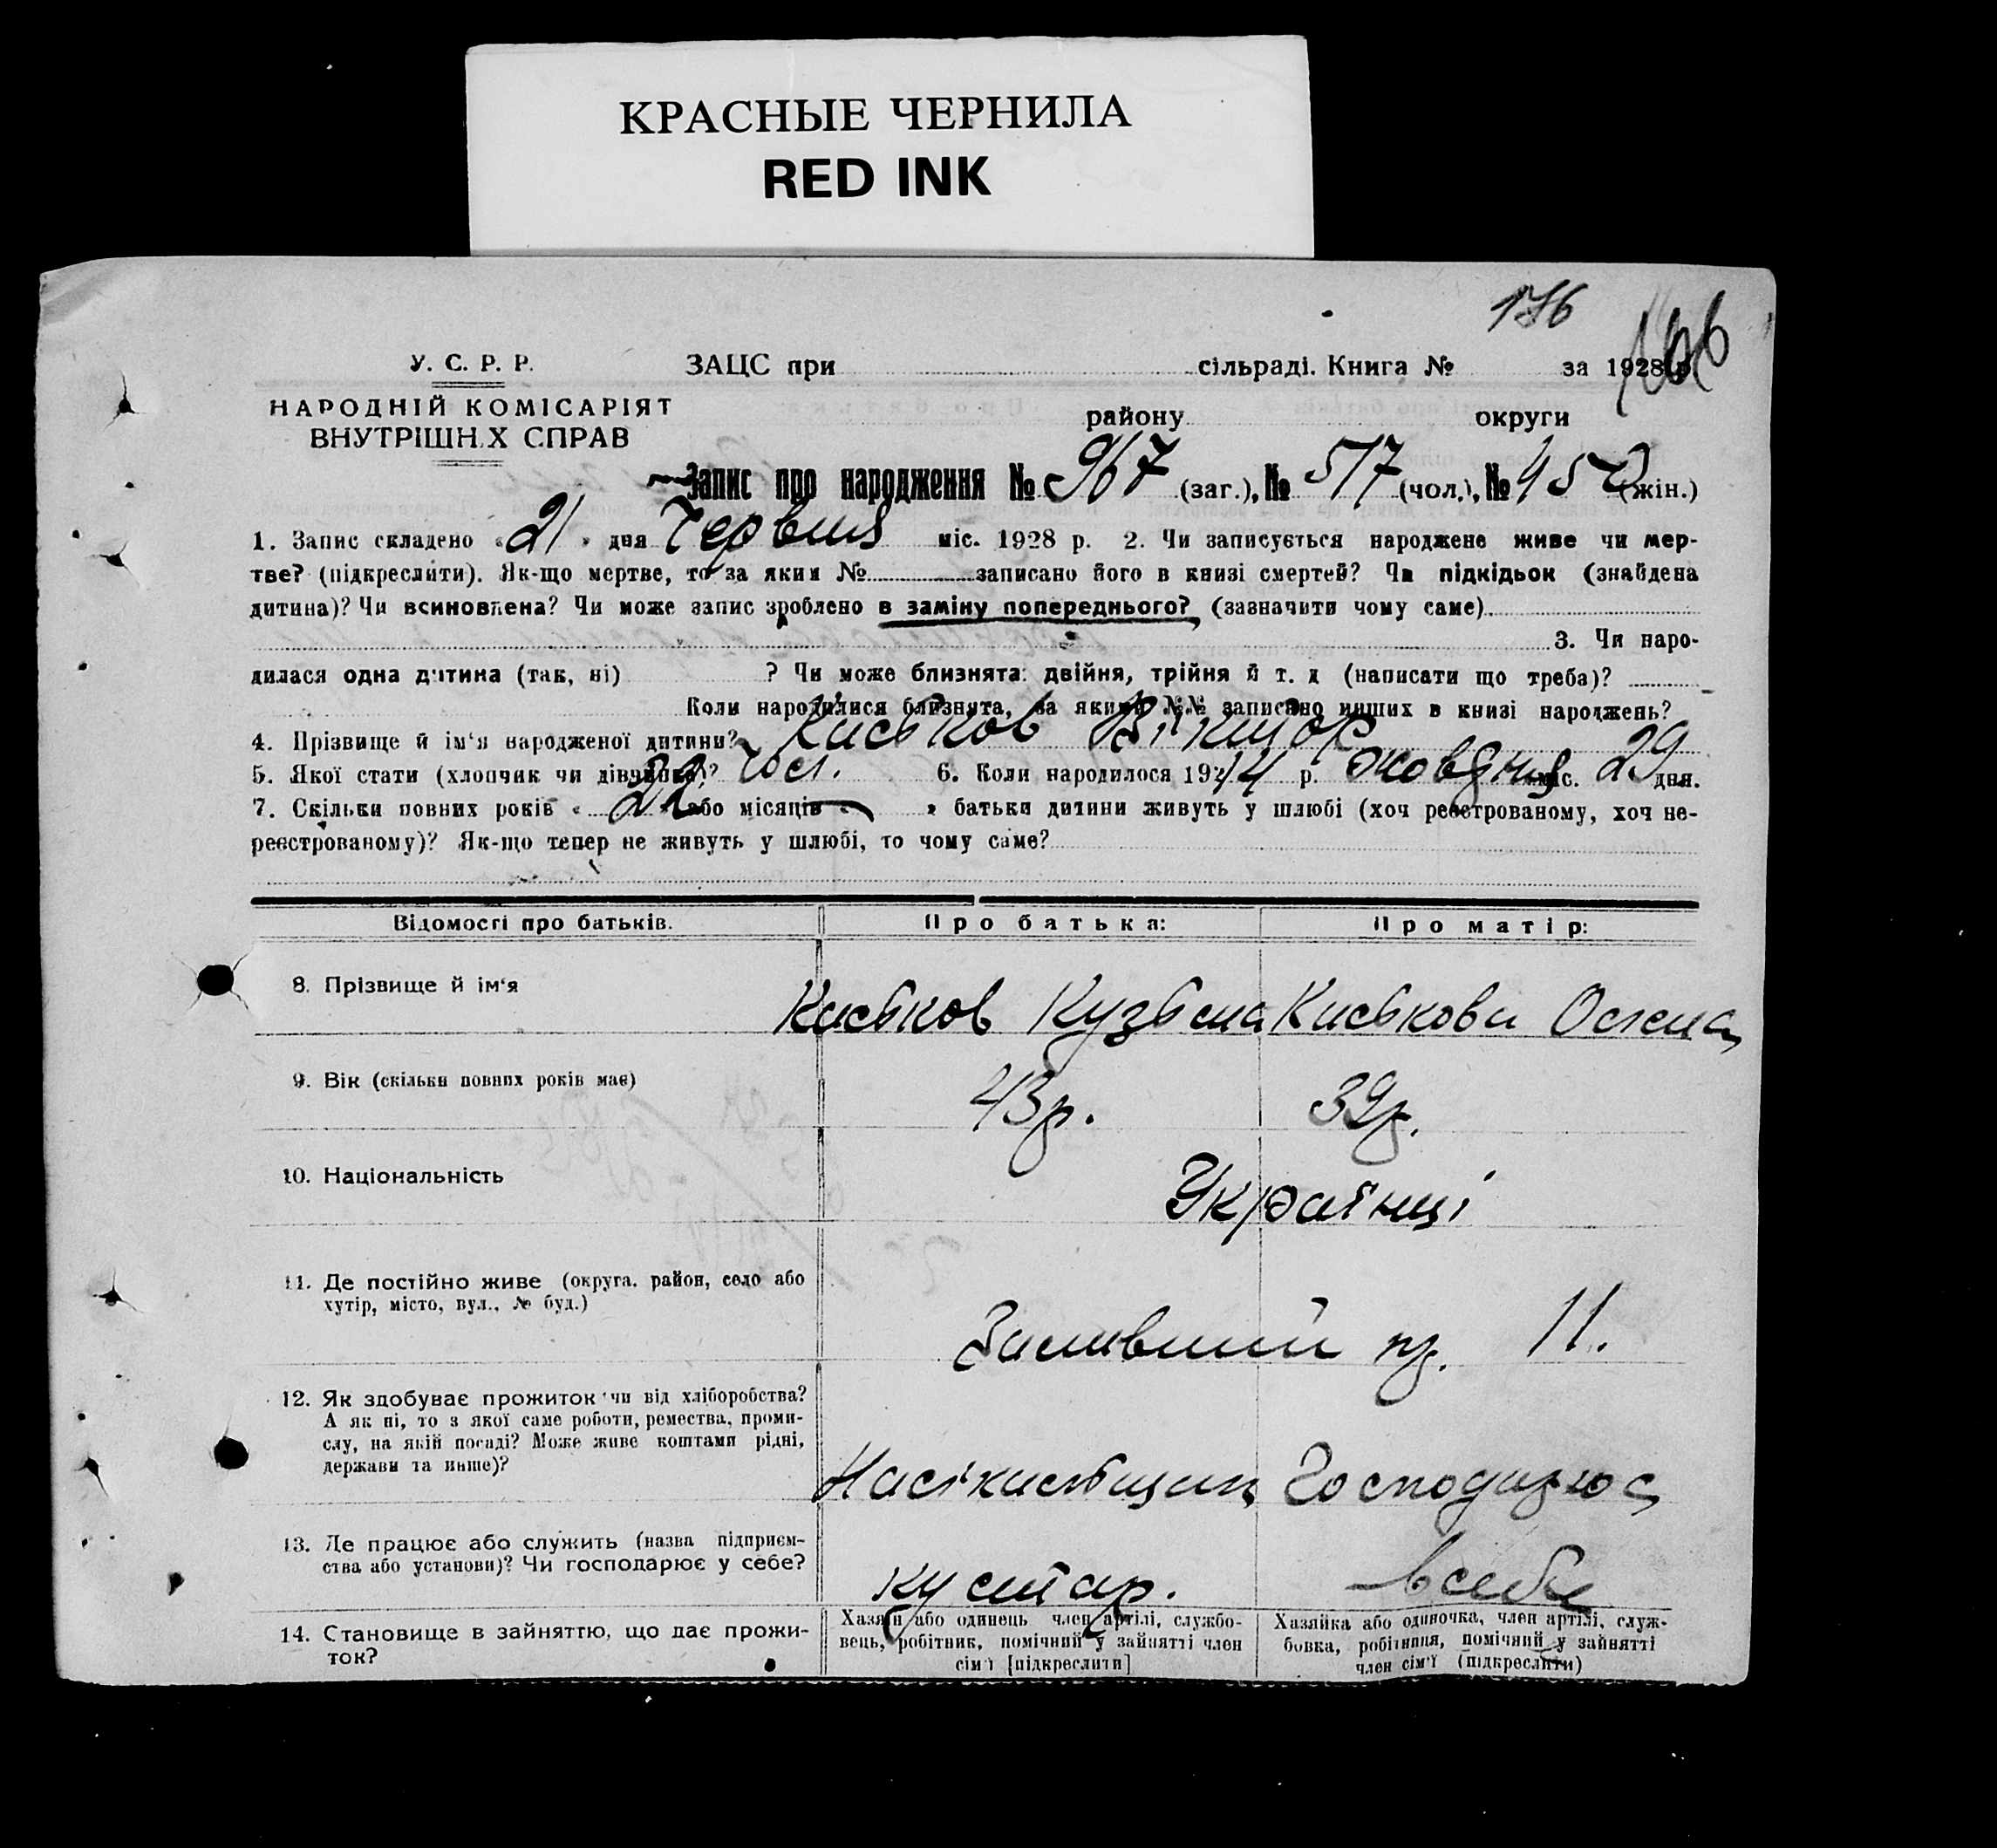 КРАСНЫЕ ЧЕРНИЛА
RED INK
176
166
У. С. Р. Р. ЗАЦС при сільраді. Книга № за 1928 р.
НАРОДНІЙ КОМІСАРІЯТ
ВНУТРІШН.Х СПРАВ
району округи
Запис про народження № 967 (заг.), № 517 (чол.), № 450 (жін.)
1. Запис складено « 21 » дня Червня міс. 1928 р. 2. Чи записується народжене живе чи мер-
тве? (підкреслити). Як-що мертве, то за яким № записано його в книзі смертей? Чи підкідьок (знайдена
дитина)? Чи всиновлена? Чи може запис зроблено в заміну попереднього? (зазначити чому саме)
3. Чи наро-
дилася одна дитина (так, ні) ? Чи може близнята: двійня, трійня й т. д (написати що треба)?
Коли народилися близнята, за якими №№ записано инших в книзі народжень?
4. Прізвище й ім'я народженої дитини? Киськов Віктор
5. Якої стати (хлопчик чи дівчинка)? чол. 6. Коли народилося 1914 р. жовтня міс. 29 дня.
7. Скільки повних років « 22 » або місяців « — » батьки дитини живуть у шлюбі (хоч реєстрованому, хоч не-
реєстрованому)? Як-що тепер не живуть у шлюбі, то чому саме?
Відомості про батьків. Про батька: Про матір:
8. Прізвище й ім'я Киськов Кузьма Киськова
9. Вік (скільки повних років має) 43 р. 39 р.
10. Національність Українці
11. Де постійно живе (округа. район, село або
хутір, місто, вул., № буд.)
11.
12. Як здобуває прожиток чи від хліборобства?
А як ні, то з якої саме роботи, ремества, проми-
слу, на якій посаді? Може живе коштами рідні,
держави та инше)?
Господарює
13. Де працює або служить (назва підприєм-
ства або установи)? Чи господарює у себе?
кустар. в себе
14. Становище в зайняттю, що дає прожи-
ток?
Хазяїн або одинець член артілі, службо-
вець, робітник, помічний у зайнятті член
сім'ї [підкреслити]
Хазяйка або одиночка, член артілі, служ-
бовка, робітниця, помічний у зайнятті
член сім'ї (підкреслити)